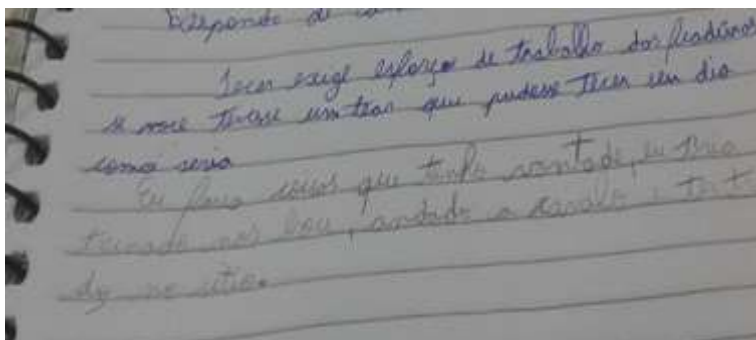 Responde de
Tecer exige esforço de trabalho dos
se você tivesse um tear que pudesse tecer um dia
como seria
Eu faria coisas que tenho vontade, eu iria
nos boi, andado a cavalo,
no sitio.